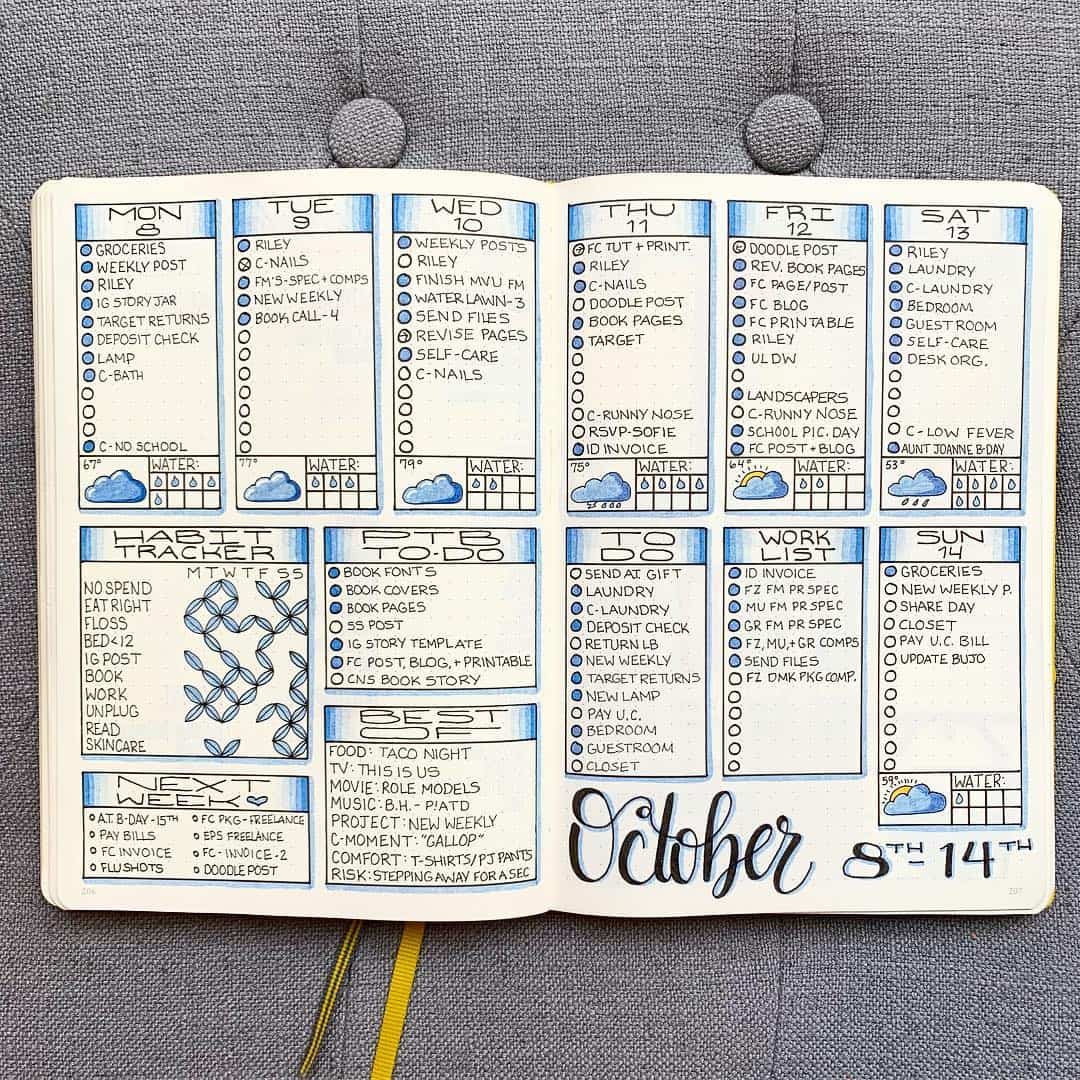 MON
8
GROCERIES
WEEKLY POST
RILEY
IG STORY JAR
TARGET RETURNS
DEPOSIT CHECK
LAMP
C-BATH
C-NO SCHOOL
67°
WATER:
TUE
9
RILEY
C-NAILS
FM'S-SPEC+COMPS
NEW WEEKLY
BOOK CALL-4
77°
WATER:
WED
10
WEEKLY POSTS
RILEY
FINISH MVU FM
WATER LAWN-3
SEND FILES
REVISE PAGES
SELF-CARE
C-NAILS
79°
WATER:
HABIT
TRACKER
M T W T F S S
NO SPEND
EAT RIGHT
FLOSS
BED<12
IG POST
BOOK
WORK
UNPLUG
READ
SKINCARE
PTB
TO-DO
BOOK FONTS
BOOK COVERS
BOOK PAGES
SS POST
IG STORY TEMPLATE
FC POST, BLOG, + PRINTABLE
CNS BOOK STORY
NEXT
WEEK
A.T. B-DAY-15TH
PAY BILLS
FC INVOICE
FLU SHOTS
FC PKG-FREELANCE
EPS FREELANCE
FC-INVOICE-2
DOODLE POST
BEST
OF
FOOD: TACO NIGHT
TV: THIS IS US
MOVIE: ROLE MODELS
MUSIC: B.H.- P!ATD
PROJECT: NEW WEEKLY
C-MOMENT: "GALLOP"
COMFORT: T-SHIRTS/PJ PANTS
RISK: STEPPING AWAY FOR A SEC
206
THU
11
FC TUT + PRINT.
RILEY
C-NAILS
DOODLE POST
BOOK PAGES
TARGET
C-RUNNY NOSE
RSVP-SOFIE
ID INVOICE
75°
WATER:
FRI
12
DOODLE POST
REV. BOOK PAGES
FC PAGE/POST
FC BLOG
FC PRINTABLE
RILEY
UL DW
LANDSCAPERS
C-RUNNY NOSE
SCHOOL PIC. DAY
FC POST + BLOG
64°
WATER:
SAT
13
RILEY
LAUNDRY
C-LAUNDRY
BEDROOM
GUEST ROOM
SELF-CARE
DESK ORG.
C-LOW FEVER
AUNT JOANNE B-DAY
53°
WATER:
TO
DO
SEND A.T. GIFT
LAUNDRY
C-LAUNDRY
DEPOSIT CHECK
RETURN LB
NEW WEEKLY
TARGET RETURNS
NEW LAMP
PAY U.C.
BEDROOM
GUESTROOM
CLOSET
WORK
LIST
ID INVOICE
FZ FM PR SPEC
MU FM PR SPEC
GR FM PR SPEC
FZ, MU,+ GR COMPS
SEND FILES
FZ DMK PKG COMP.
SUN
14
GROCERIES
NEW WEEKLY P.
SHARE DAY
CLOSET
PAY U.C. BILL
UPDATE BUJO
59°
WATER:
October
8TH - 14TH
207